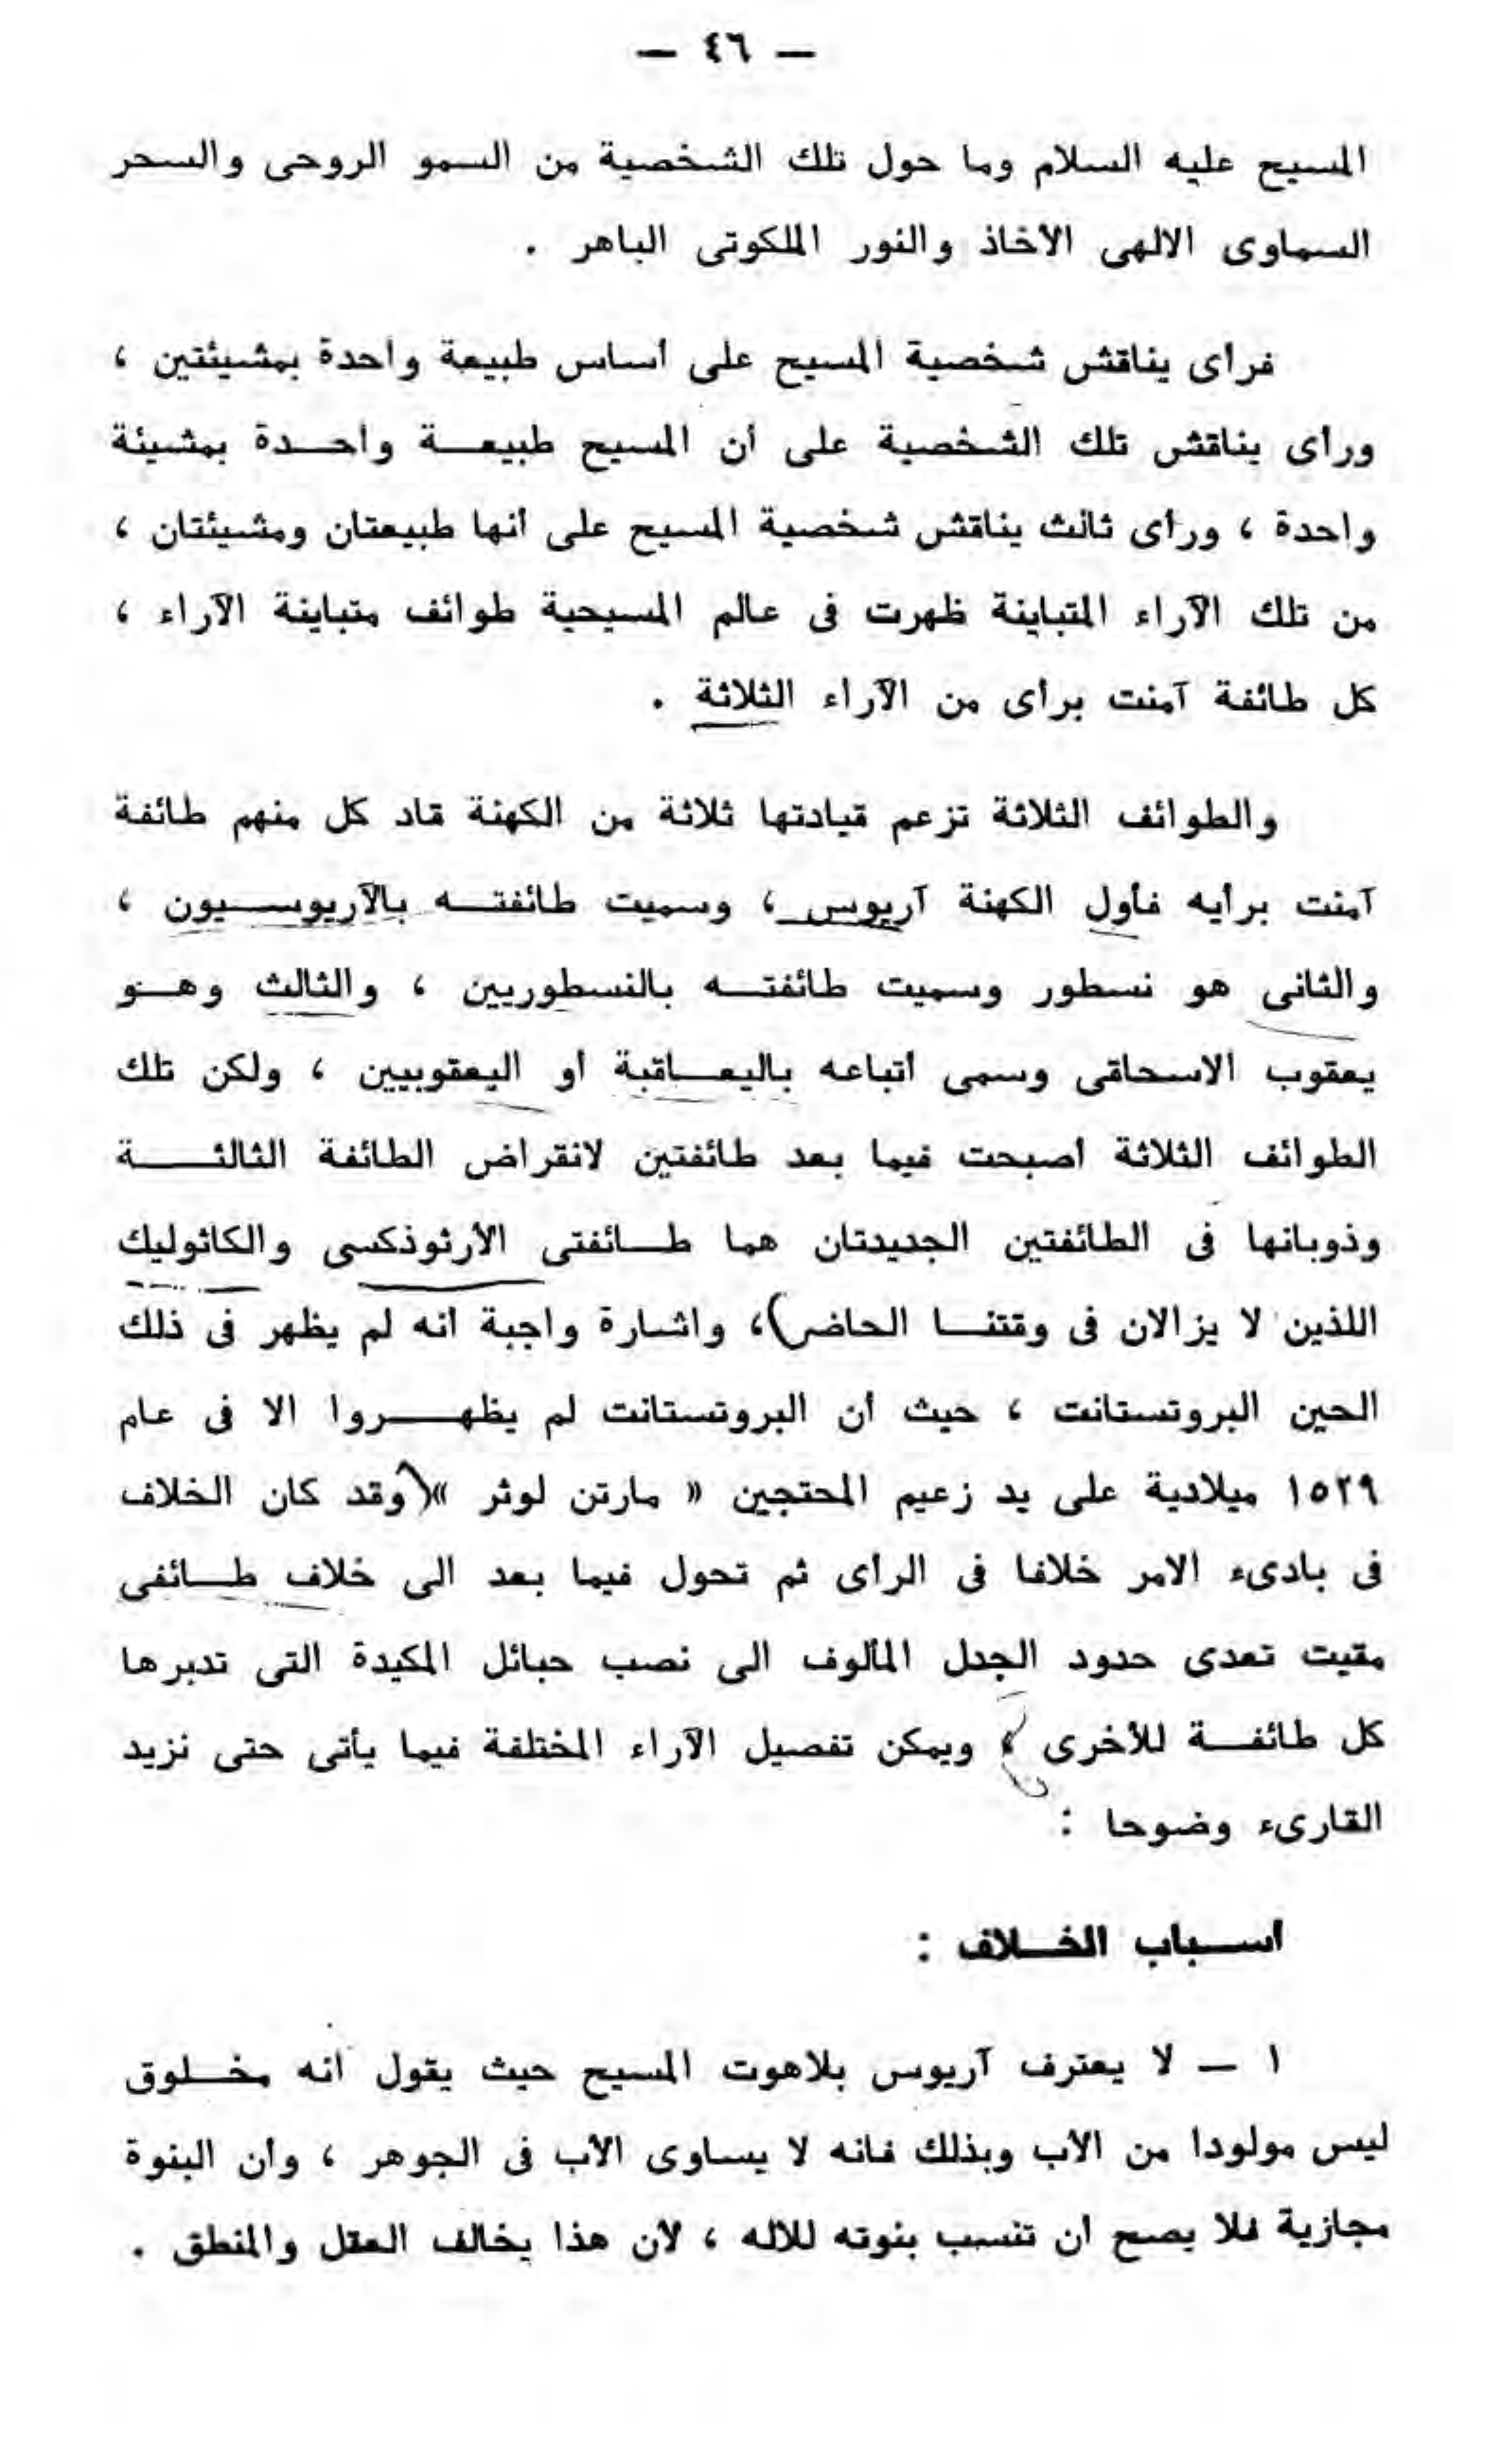 — ٤٦ —
المسيح عليه السلام وما حول تلك الشخصية من السمو الروحى والسحر
السماوى الالهى الأخاذ والنور الملكوتى الباهر .
فرأى يناقش شخصية المسيح على أساس طبيعة واحدة بمشيئتين ،
ورأى يناقش تلك الشخصية على أن المسيح طبيعة واحدة بمشيئة
واحدة ، ورأى ثالث يناقش شخصية المسيح على أنها طبيعتان ومشيئتان ،
من تلك الآراء المتباينة ظهرت فى عالم المسيحية طوائف متباينة الآراء ،
كل طائفة آمنت برأى من الآراء الثلاثة .
والطوائف الثلاثة تزعم قيادتها ثلاثة من الكهنة قاد كل منهم طائفة
آمنت برأيه فأول الكهنة آريوس ، وسميت طائفته بالآريوسيون ،
والثانى هو نسطور وسميت طائفته بالنسطوريين ، والثالث وهو
يعقوب الاسحاقى وسمى أتباعه باليعاقبة أو اليعقوبيين ، ولكن تلك
الطوائف الثلاثة أصبحت فيما بعد طائفتين لانقراض الطائفة الثالثة
وذوبانها فى الطائفتين الجديدتان هما طائفتى الأرثوذكسى والكاثوليك
اللذين لا يزالان فى وقتنا الحاضر)، واشارة واجبة أنه لم يظهر فى ذلك
الحين البروتستانت ، حيث أن البروتستانت لم يظهروا الا فى عام
١٥٢٩ ميلادية على يد زعيم المحتجين « مارتن لوثر »(وقد كان الخلاف
فى بادىء الامر خلافا فى الرأى ثم تحول فيما بعد الى خلاف طائفى
مقيت تعدى حدود الجدل المألوف الى نصب حبائل المكيدة التى تدبرها
كل طائفة للأخرى ، ويمكن تفصيل الآراء المختلفة فيما يأتى حتى نزيد
القارىء وضوحا :
اسباب الخلاف :
١ — لا يعترف آريوس بلاهوت المسيح حيث يقول أنه مخلوق
ليس مولودا من الأب وبذلك فانه لا يساوى الأب فى الجوهر ، وأن البنوة
مجازية فلا يصح أن تنسب بنوته للاله ، لأن هذا يخالف العقل والمنطق .